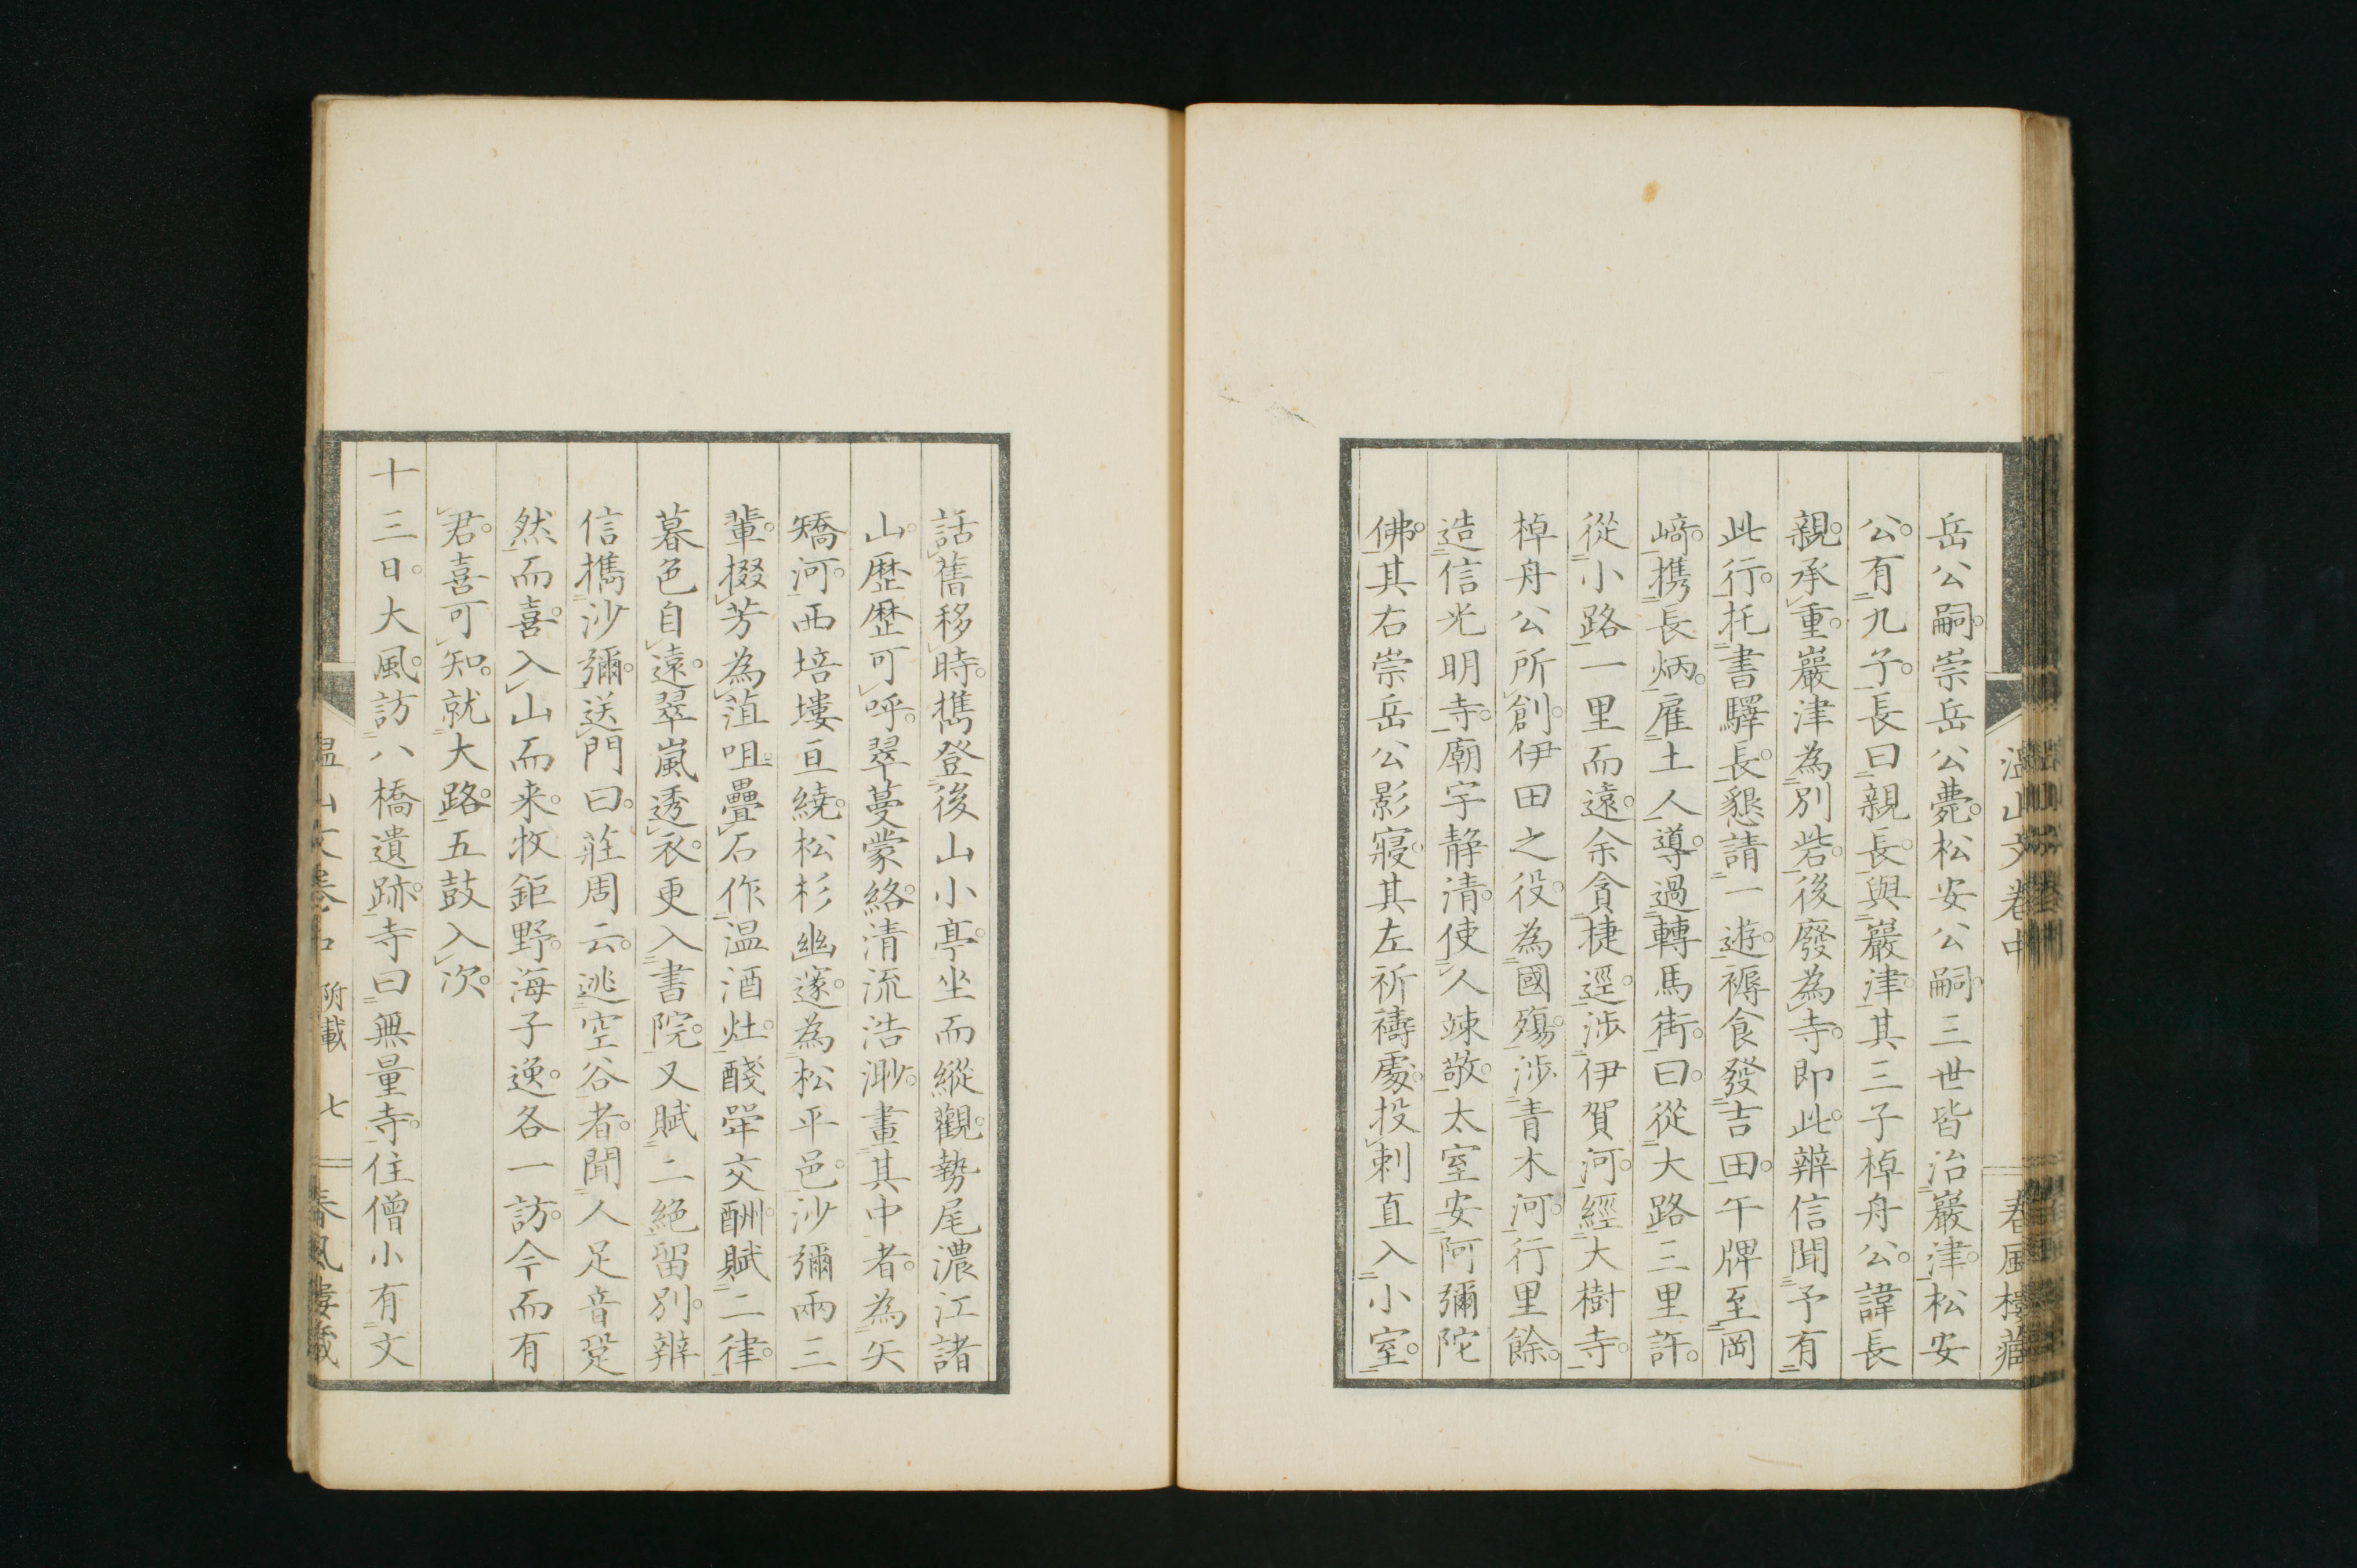 温山文卷中
春風樓藏
岳公嗣。崇岳公薨。松安公嗣。三世皆治巖津。松安
公。有九子。長曰親長。與巖津。其三子棹舟公。諱長
親。承重。巖津為別砦。後廢為寺。即此。辨信聞予有
此行。托書驛長。懇請一遊。褥食發吉田。午牌至岡
﨑。携長炳。雇土人導。過轉馬街。曰。從大路三里許。
從小路一里而遠。余貪捷逕。涉伊賀河。經大樹寺。
棹舟公所創。伊田之役。為國殤。涉青木河。行里餘。
造信光明寺。廟宇静清。使人竦敬。太室安阿彌陀
佛。其右崇岳公影寢。其左祈禱處。投刺直入小室。
話舊移時。擕登後山小亭。坐而縱觀。勢尾濃江諸
山。歷歷可呼。翠蔓蒙絡。清流浩渺。畫其中者。為矢
矯河。西培塿亘繞。松杉幽邃。為松平邑。沙彌兩三
輩。掇芳為菹咀。疊石作温酒灶。醆斝交酬。賦二律。
暮色自遠。翠嵐透衣。更入書院。又賦二絶留別。辨
信擕沙彌。送門曰。莊周云。逃空谷者。聞人足音跫
然而喜。入山而来。牧鉅野。海子逸。各一訪。今而有
君。喜可知。就大路。五鼓入次。
十三日。大風。訪八橋遺跡。寺曰無量寺。住僧小有文
温山文卷中 附載 七
春風樓藏